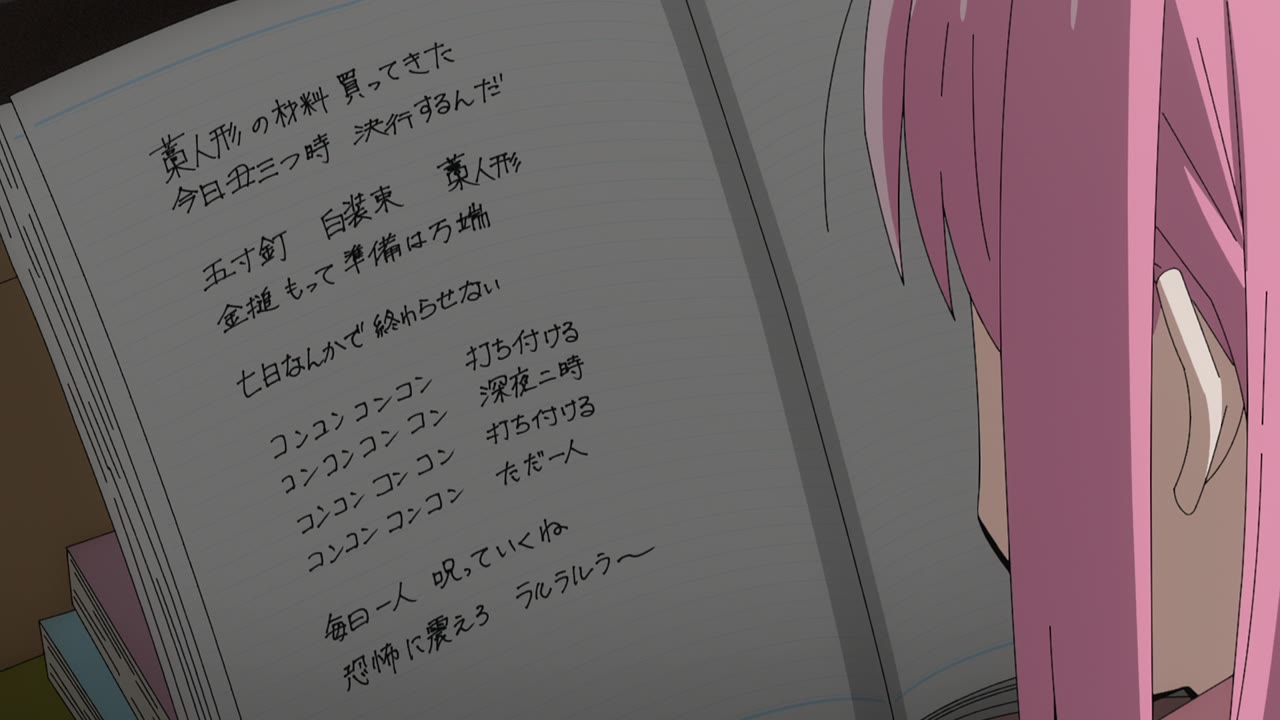 藁人形の材料 買ってきた
今日丑三つ時 決行するんだ
五寸釘 白装束 藁人形
金槌もって 準備は万端
七日なんかで 終わらせない
コンコンコンコン 打ち付ける
コンコンコンコン 深夜二時
コンコンコンコン 打ち付ける
コンコンコンコン ただ一人
毎日一人 呪っていくね
恐怖に震えろ ラルラルラ〜